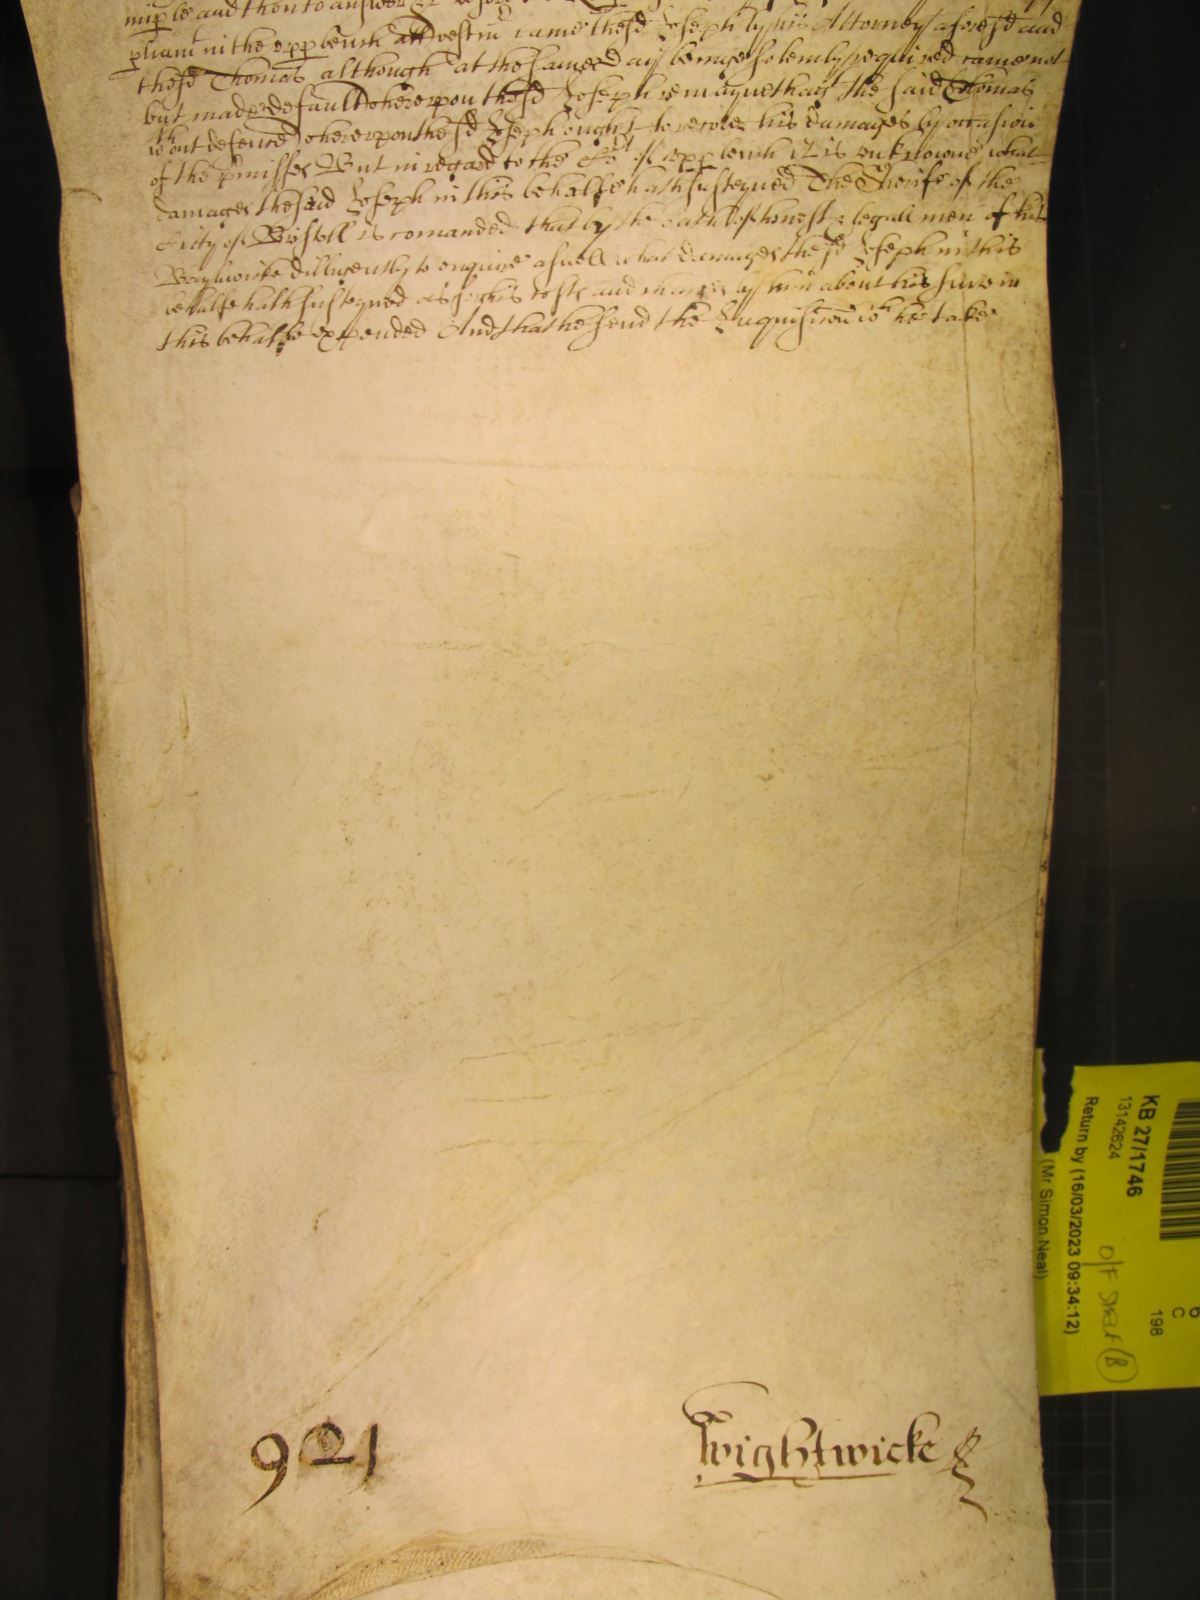 and then to answer
in the upper bench att Westm came the sd Joseph by his Attorney aforesd and
the sd Thomas although at the same day being solemly required came not
but made default whereupon the sd Joseph that the said Thomas
wthout defence whereupon the sd Joseph ought to recover his damages by occasion
of the pmisses But in regard to the Cort of upp bench it is unknowne what
damages the said Joseph in this behalfe hath susteyned The Sherife of the
Citty of Bristoll is comanded that by the oath of honest & legall men of his
Baylywicke dilligently to enquire aswell what damages the sd Joseph in this
behalfe hath susteyned as for his costs and charges by him about his suite in
this behalfe expended And that he send the Inquisicon wch he take
921
Wightwicke
KB 27/1746
13142624
Return by (16/03/2023 09:34:12)
(Mr Simon Neal)
198
6
C
O/F Shelf (B)